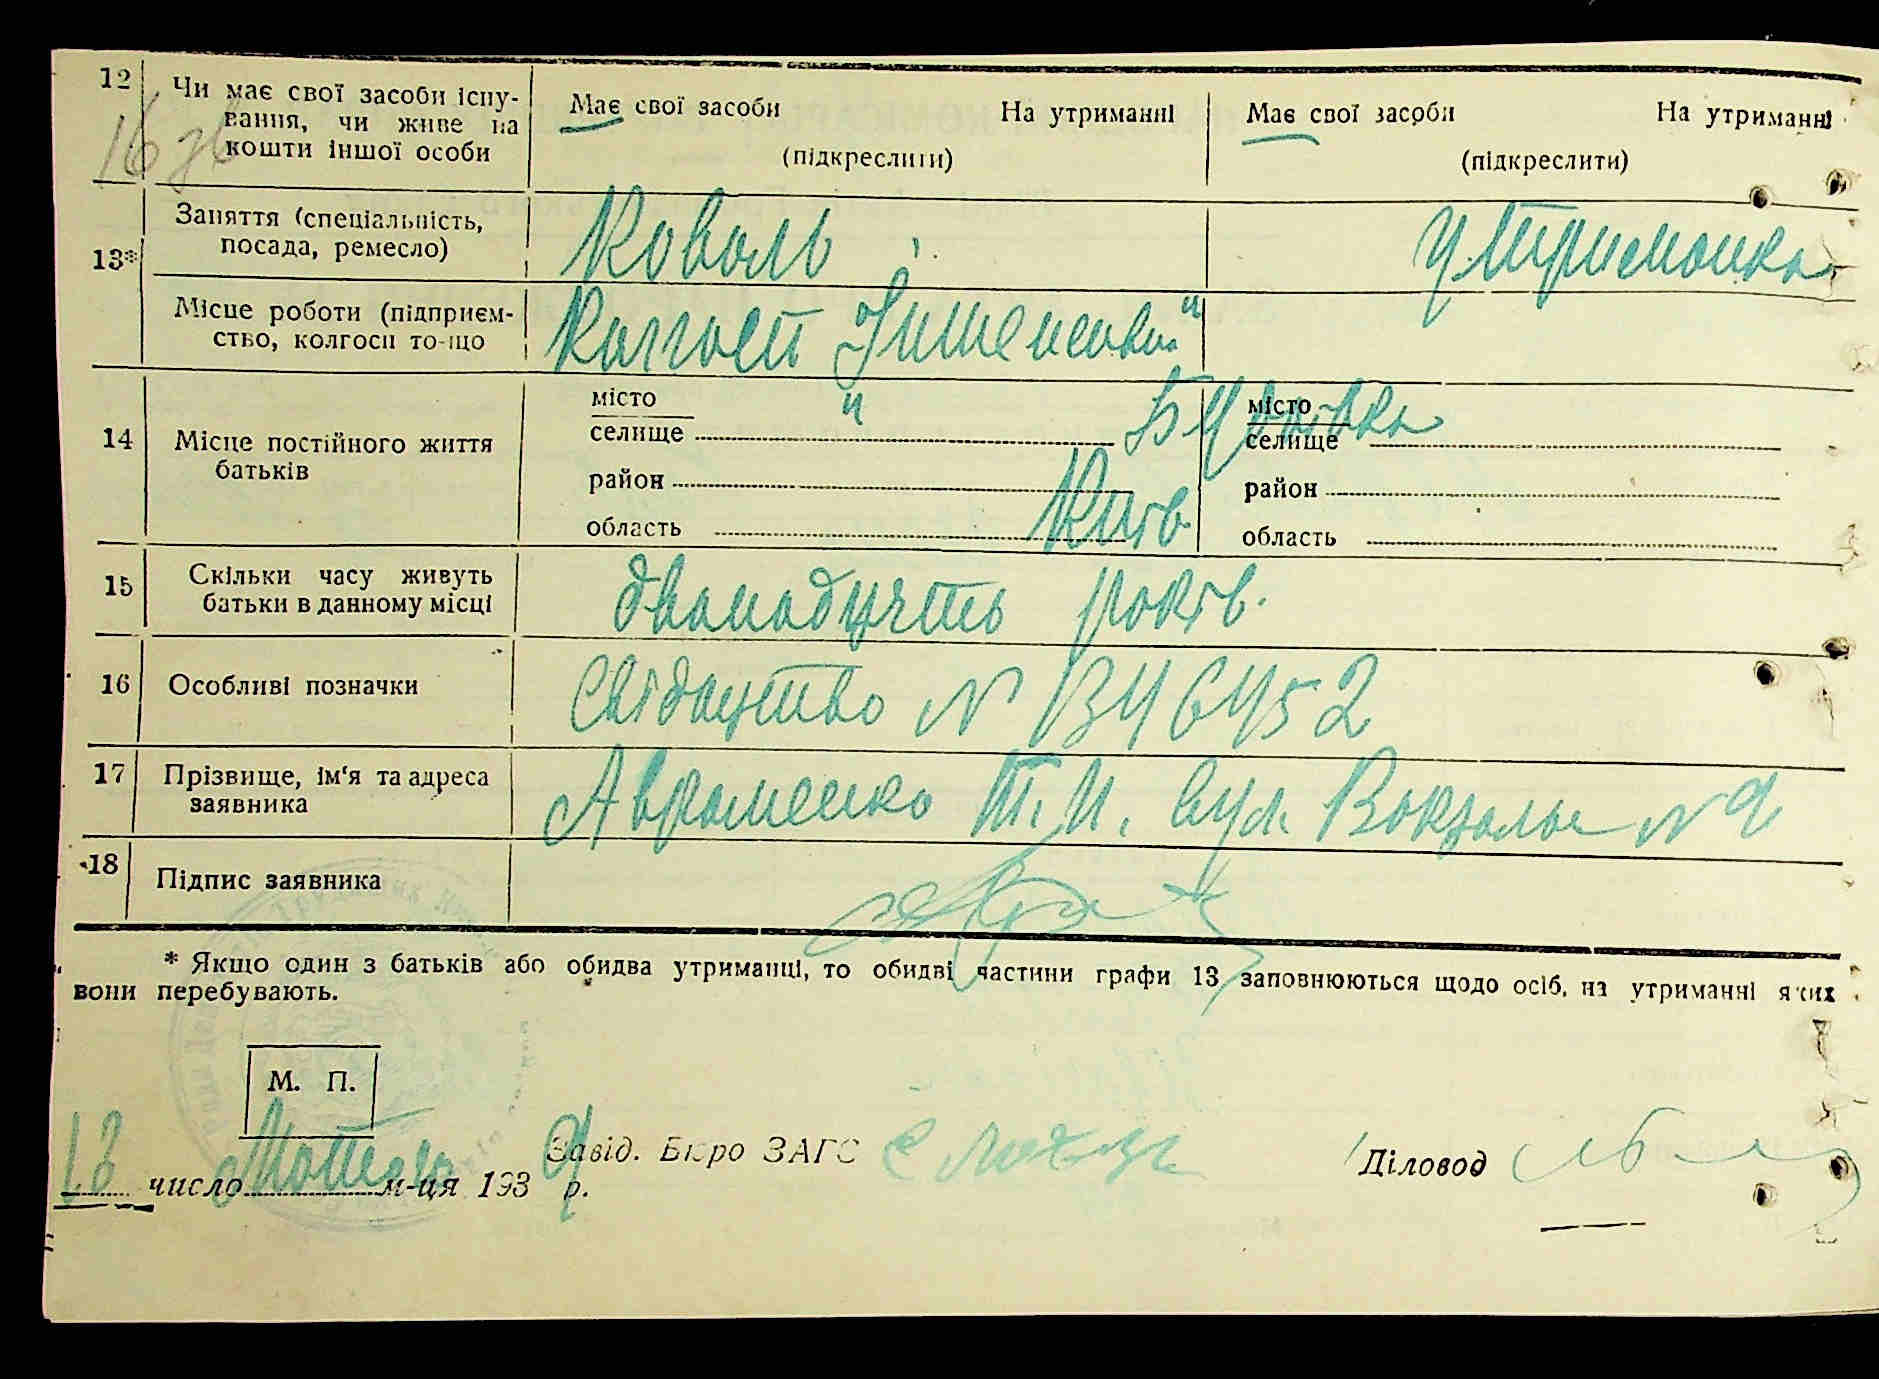 12 Чи має свої засоби існу-
вання, чи живе на
кошти іншої особи
16 зв
Має свої засоби На утриманні
(підкреслити)
Має свої засоби На утриманні
(підкреслити)
13* Заняття (спеціальність,
посада, ремесло)
Коваль
утриманка
Місце роботи (підприєм-
ство, колгосп то-що
Колгосп
14 Місце постійного життя
батьків
місто
селище
район
область
Київ
місто
селище
район
область
15 Скільки часу живуть
батьки в данному місці
дванадцять років.
16 Особливі позначки
Свідоцтво N 1346452
17 Прізвище, ім'я та адреса
заявника
Авраменко Т. И. вул. Вокзальн N 9
18 Підпис заявника
* Якщо один з батьків або обидва утриманці, то обидві частини графи 13 заповнюються щодо осіб, на утриманні яких
вони перебувають.
М. П.
13 число Лютого м-ця 1939 р.
Завід. Бюро ЗАГС
Діловод